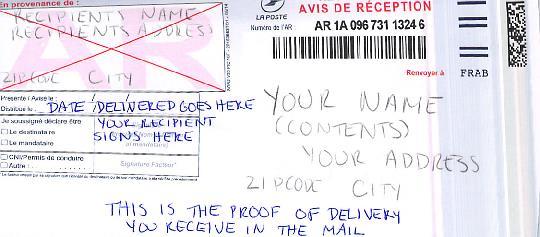 En provenance de :
RECIPIENTS NAME
RECIPIENTS ADDRESS
ZIPCODE CITY
AR
LA POSTE
AVIS DE RÉCEPTION
Numéro de l'AR : AR 1A 096 731 1324 6
Renvoyer à FRAB
Présenté / Avisé le :
Distribué le : DATE DELIVERED GOES HERE
Je soussigné déclare être
YOUR RECIPIENT
Le destinataire
SIGNS HERE
Le mandataire
CNI/Permis de conduire
Autre :
Signature Facteur*
YOUR NAME
(CONTENTS)
YOUR ADDRESS
ZIPCODE CITY
THIS IS THE PROOF OF DELIVERY
YOU RECEIVE IN THE MAIL